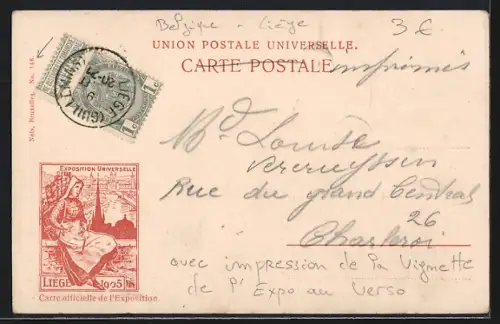 Belgique - Liège
3 €
UNION POSTALE UNIVERSELLE.
CARTE POSTALE
imprimés
Nels, Bruxelles, No. 148
LIEGE (GUILLEMINS)
1c 1c
Md Louise
Rue du grand Central
26
Charleroi
EXPOSITION UNIVERSELLE
LIEGE 1905
Carte officielle de l'Exposition.
avec impression de la Vignette
de l' Expo au verso